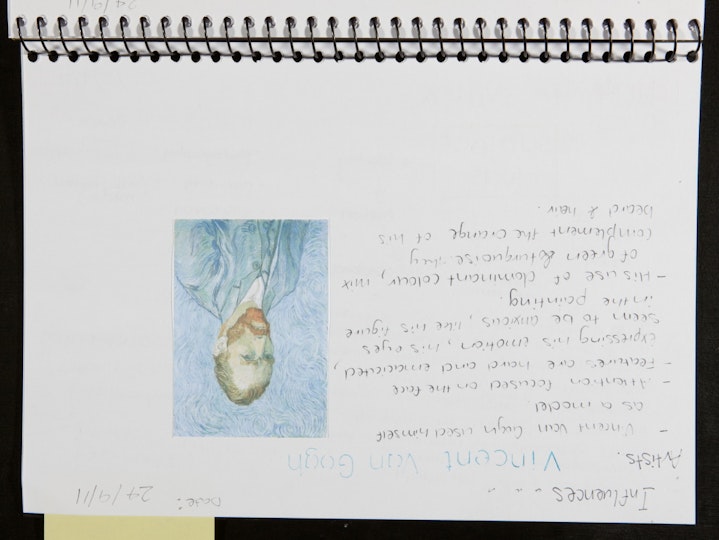 Influences . . . Date: 27/9/11
Artists. Vincent Van Gogh
- Vincent Van Gogh used himself
as a model.
- Attention focused on the face
- Features are hard and emaciated,
expressing his emotion, his eyes
seem to be anxious, like his figure
in the painting.
- His use of dominant colour, mix
of green & turquoise. they
complement the orange of his
beard & hair.